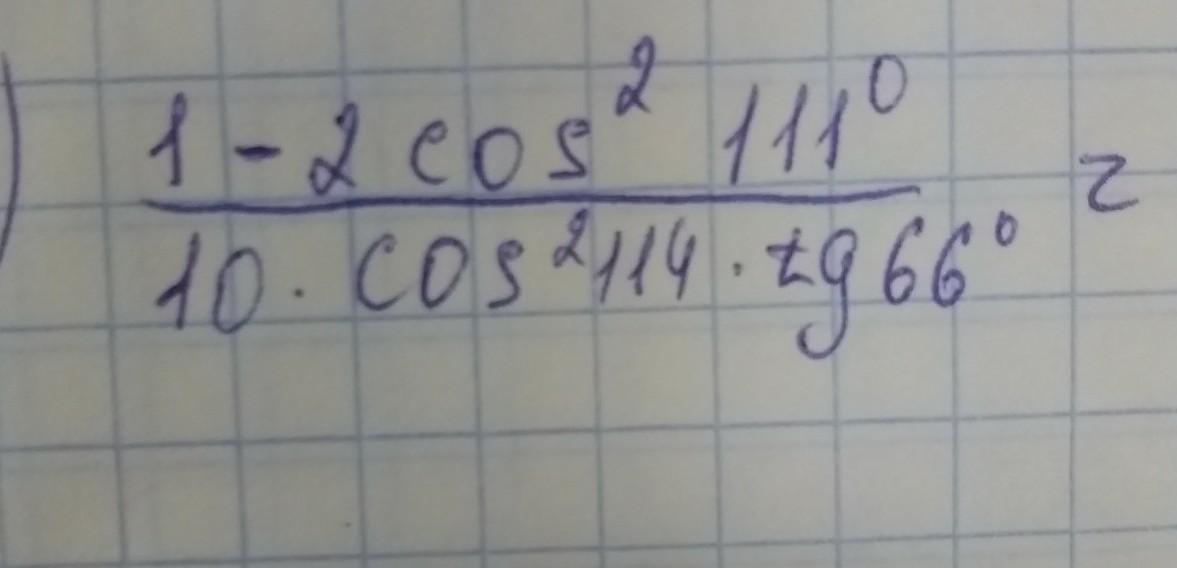 1 - 2 cos² 111⁰
10 · cos² 114 · tg 66⁰ =